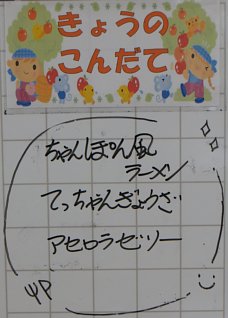 きょうの
こんだて
ちゃんぽん風
ラーメン
てっちゃんぎょうざ
アセロラゼリー